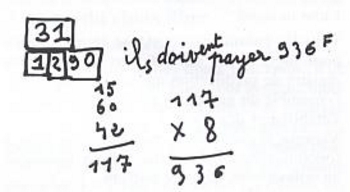 31
1290
ils doivent payer 936 F
15
60
42
117
117
x 8
936